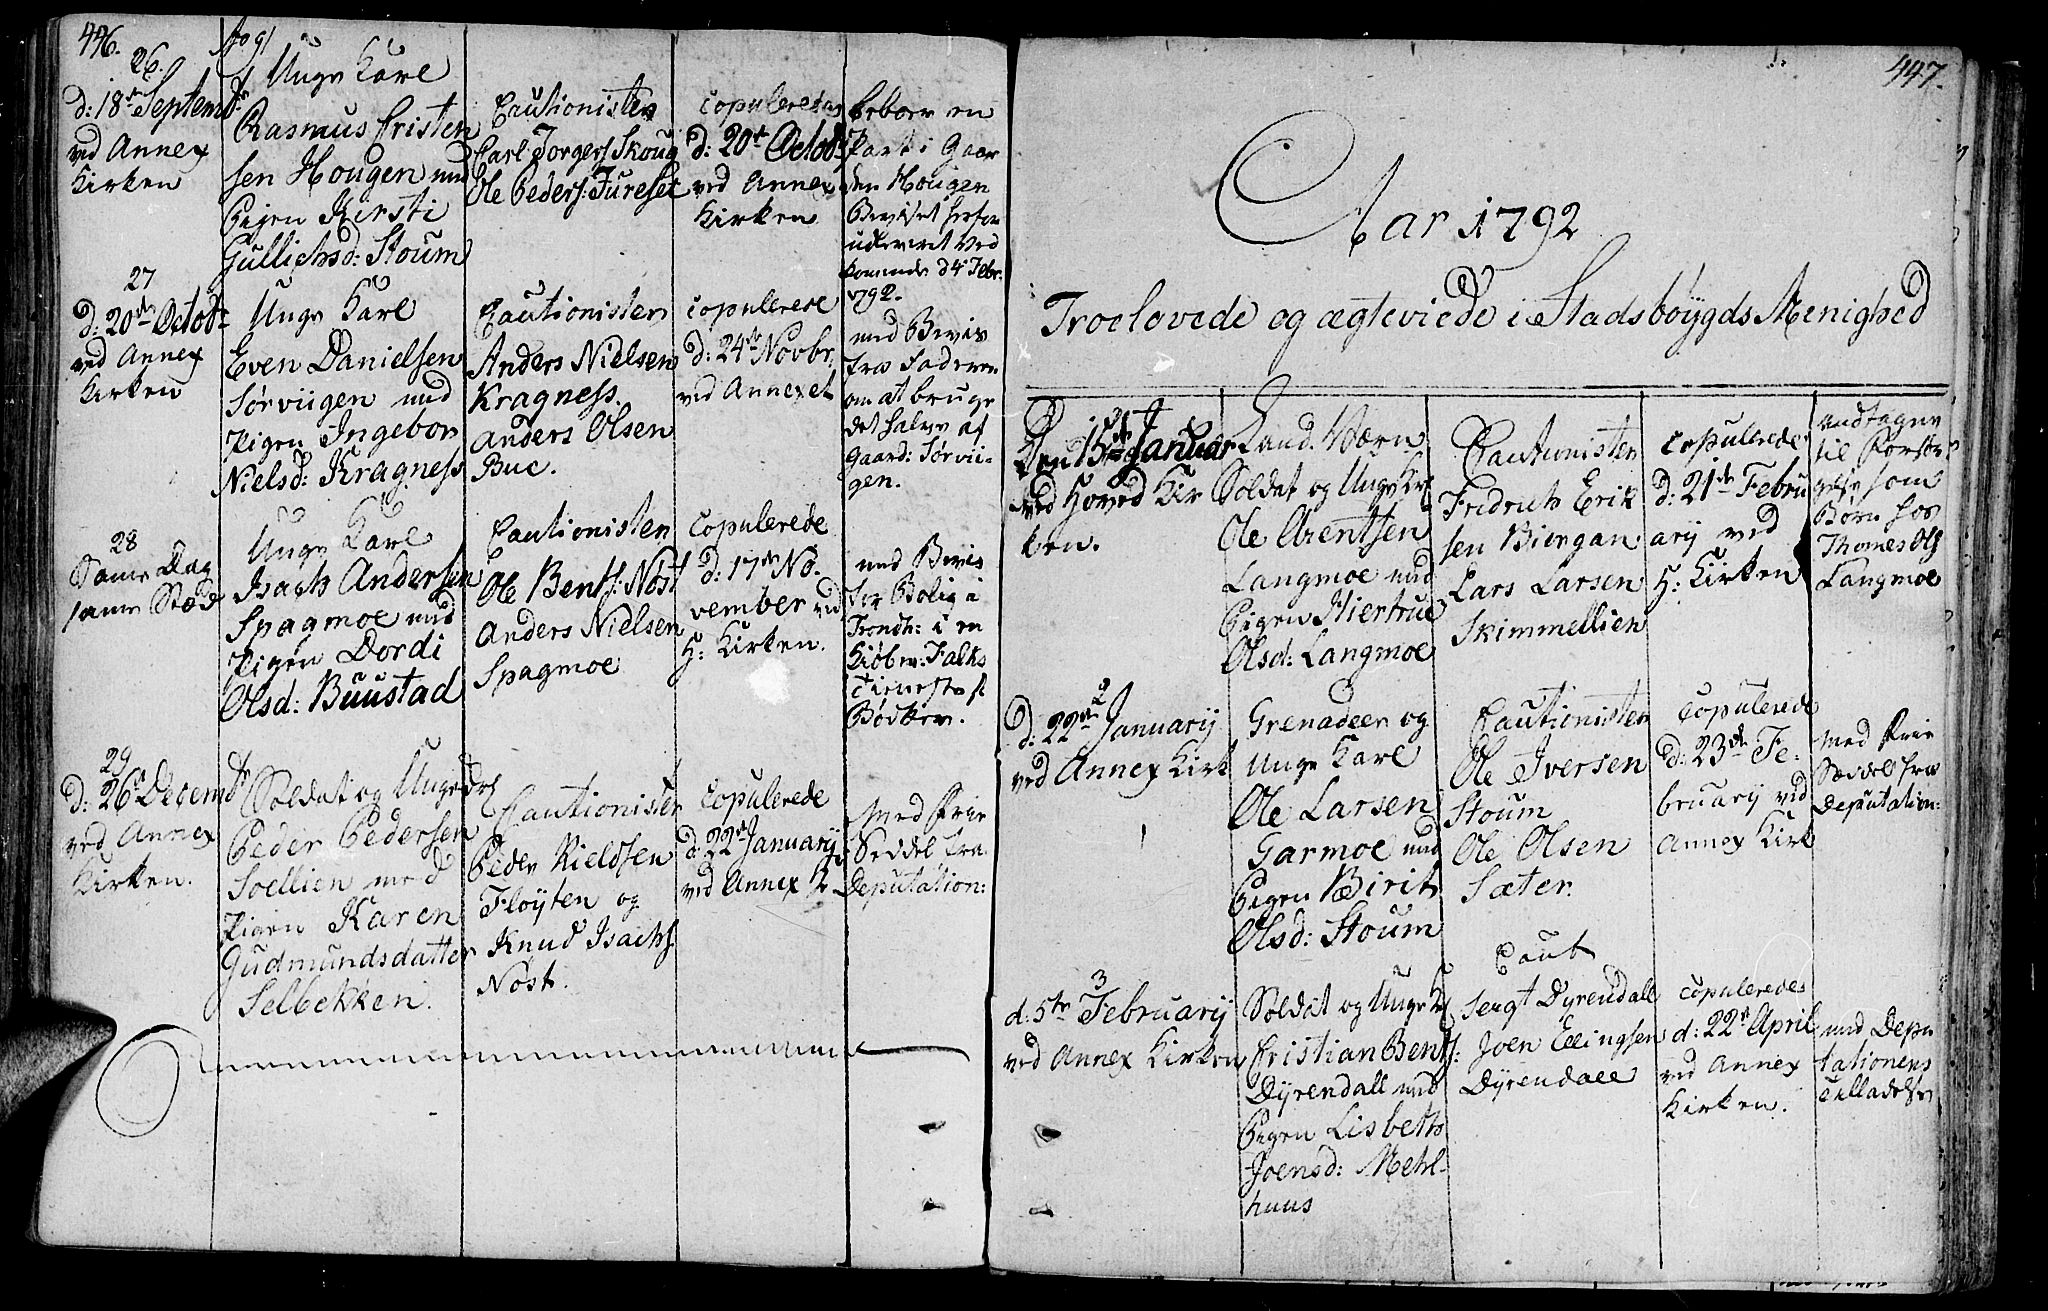 446.
26.
d: 18de Septembr
ved Annex
Kirken
Unge Karl
Rasmus Cristen
sen Hougen med
Pigen Kirsti
Gullichsd: Stoum
Cautionister
Carl Jorgens Skoug
Ole Peders: Fureset
copuleredes
d: 20de Octob:
ved Annex
Kirken
beboer en
Part i Gaar
den Hougen
Beviset herfor
udleveret Ved
kommende d 4de Febr.
1792.
27
d: 20de Octob:
ved Annex
Kirken
Unge Karl
Even Danielsen
Sørviigen med
Pigen Ingebor
Nielsd: Kragness
Cautionister
Anders Nielsen
Kragness.
Anders Olsen
Bue.
copulerede
d: 24de Novbr.
ved Annexet
med Bevis
fra Faderen
om at bruge
det halve af
Gaard: Sørvii-
gen.
28
Same Dag
same Sted
Unge Karl
Isach Andersen
Spagmoe med
Pigen Dordi
Olsd: Buustad
Cautionister
Ole Bents: Nøst
Anders Nielsen
Spagmoe
copulerede
d: 17de No-
vember ved
H: Kirken.
med Bevis
for Bolig i
Trondh: i en
Kiøbm: Falks
Tieneste st
Bødker.
29
d: 26de Decembr
ved Annex
Kirken.
Soldat og Unge Karl
Peder Pedersen
Soellien med
Pigen Karen
Gudmundsdatter
Selbekken.
Cautionister
Peder Nieldsen
Fløyten og
Knud Isachs.
Nøst.
copulerede
d: 22de January
ved Annex K
Med Frie
Seddel fra
Deputation:
447.
Aar 1792
Troelovede og ægteviede i Stadsbøygds Menighed
1
Den 15de Januar
ved Hoved Kir
ken.
Land Værn
Soldat og Unge Karl
Ole Arentsen
Langmoe med
Pigen Hiertrue
Olsd: Langmoe
Cautionister
Fridrich Erik
sen Biergan
Lars Larsen
Skimmellien
copulerede
d: 21de Febru
ary ved
H: Kirken
andtagne
til Forsør
gelse som
Børn hos
Thomes Ols
Langmoe
2
d: 22de January
ved Annex Kirk
Grenadeer og
Unge Karl
Ole Larsen
Garmoe med
Pigen Birit
Olsd: Stoum
Cautionister
Ole Iversen
Stoum
Ole Olsen
Sæter.
copulerede
d: 23de Fe-
bruary ved
Annex Kirk
Med Frie
Seddel fra
Deputation:
3
d: 5te February
ved Annex Kirken
Soldat og Unge K
Cristian Bents:
Dyrendall med
Pigen Lisbeth
Joensd: Mehl-
huus
Caut
Sergt Dyrendall
Joen Ellingsen
Dyrendall
copuleredes
d: 22de April
ved Annex
Kirken.
med Depu
tationens
Tilladelse